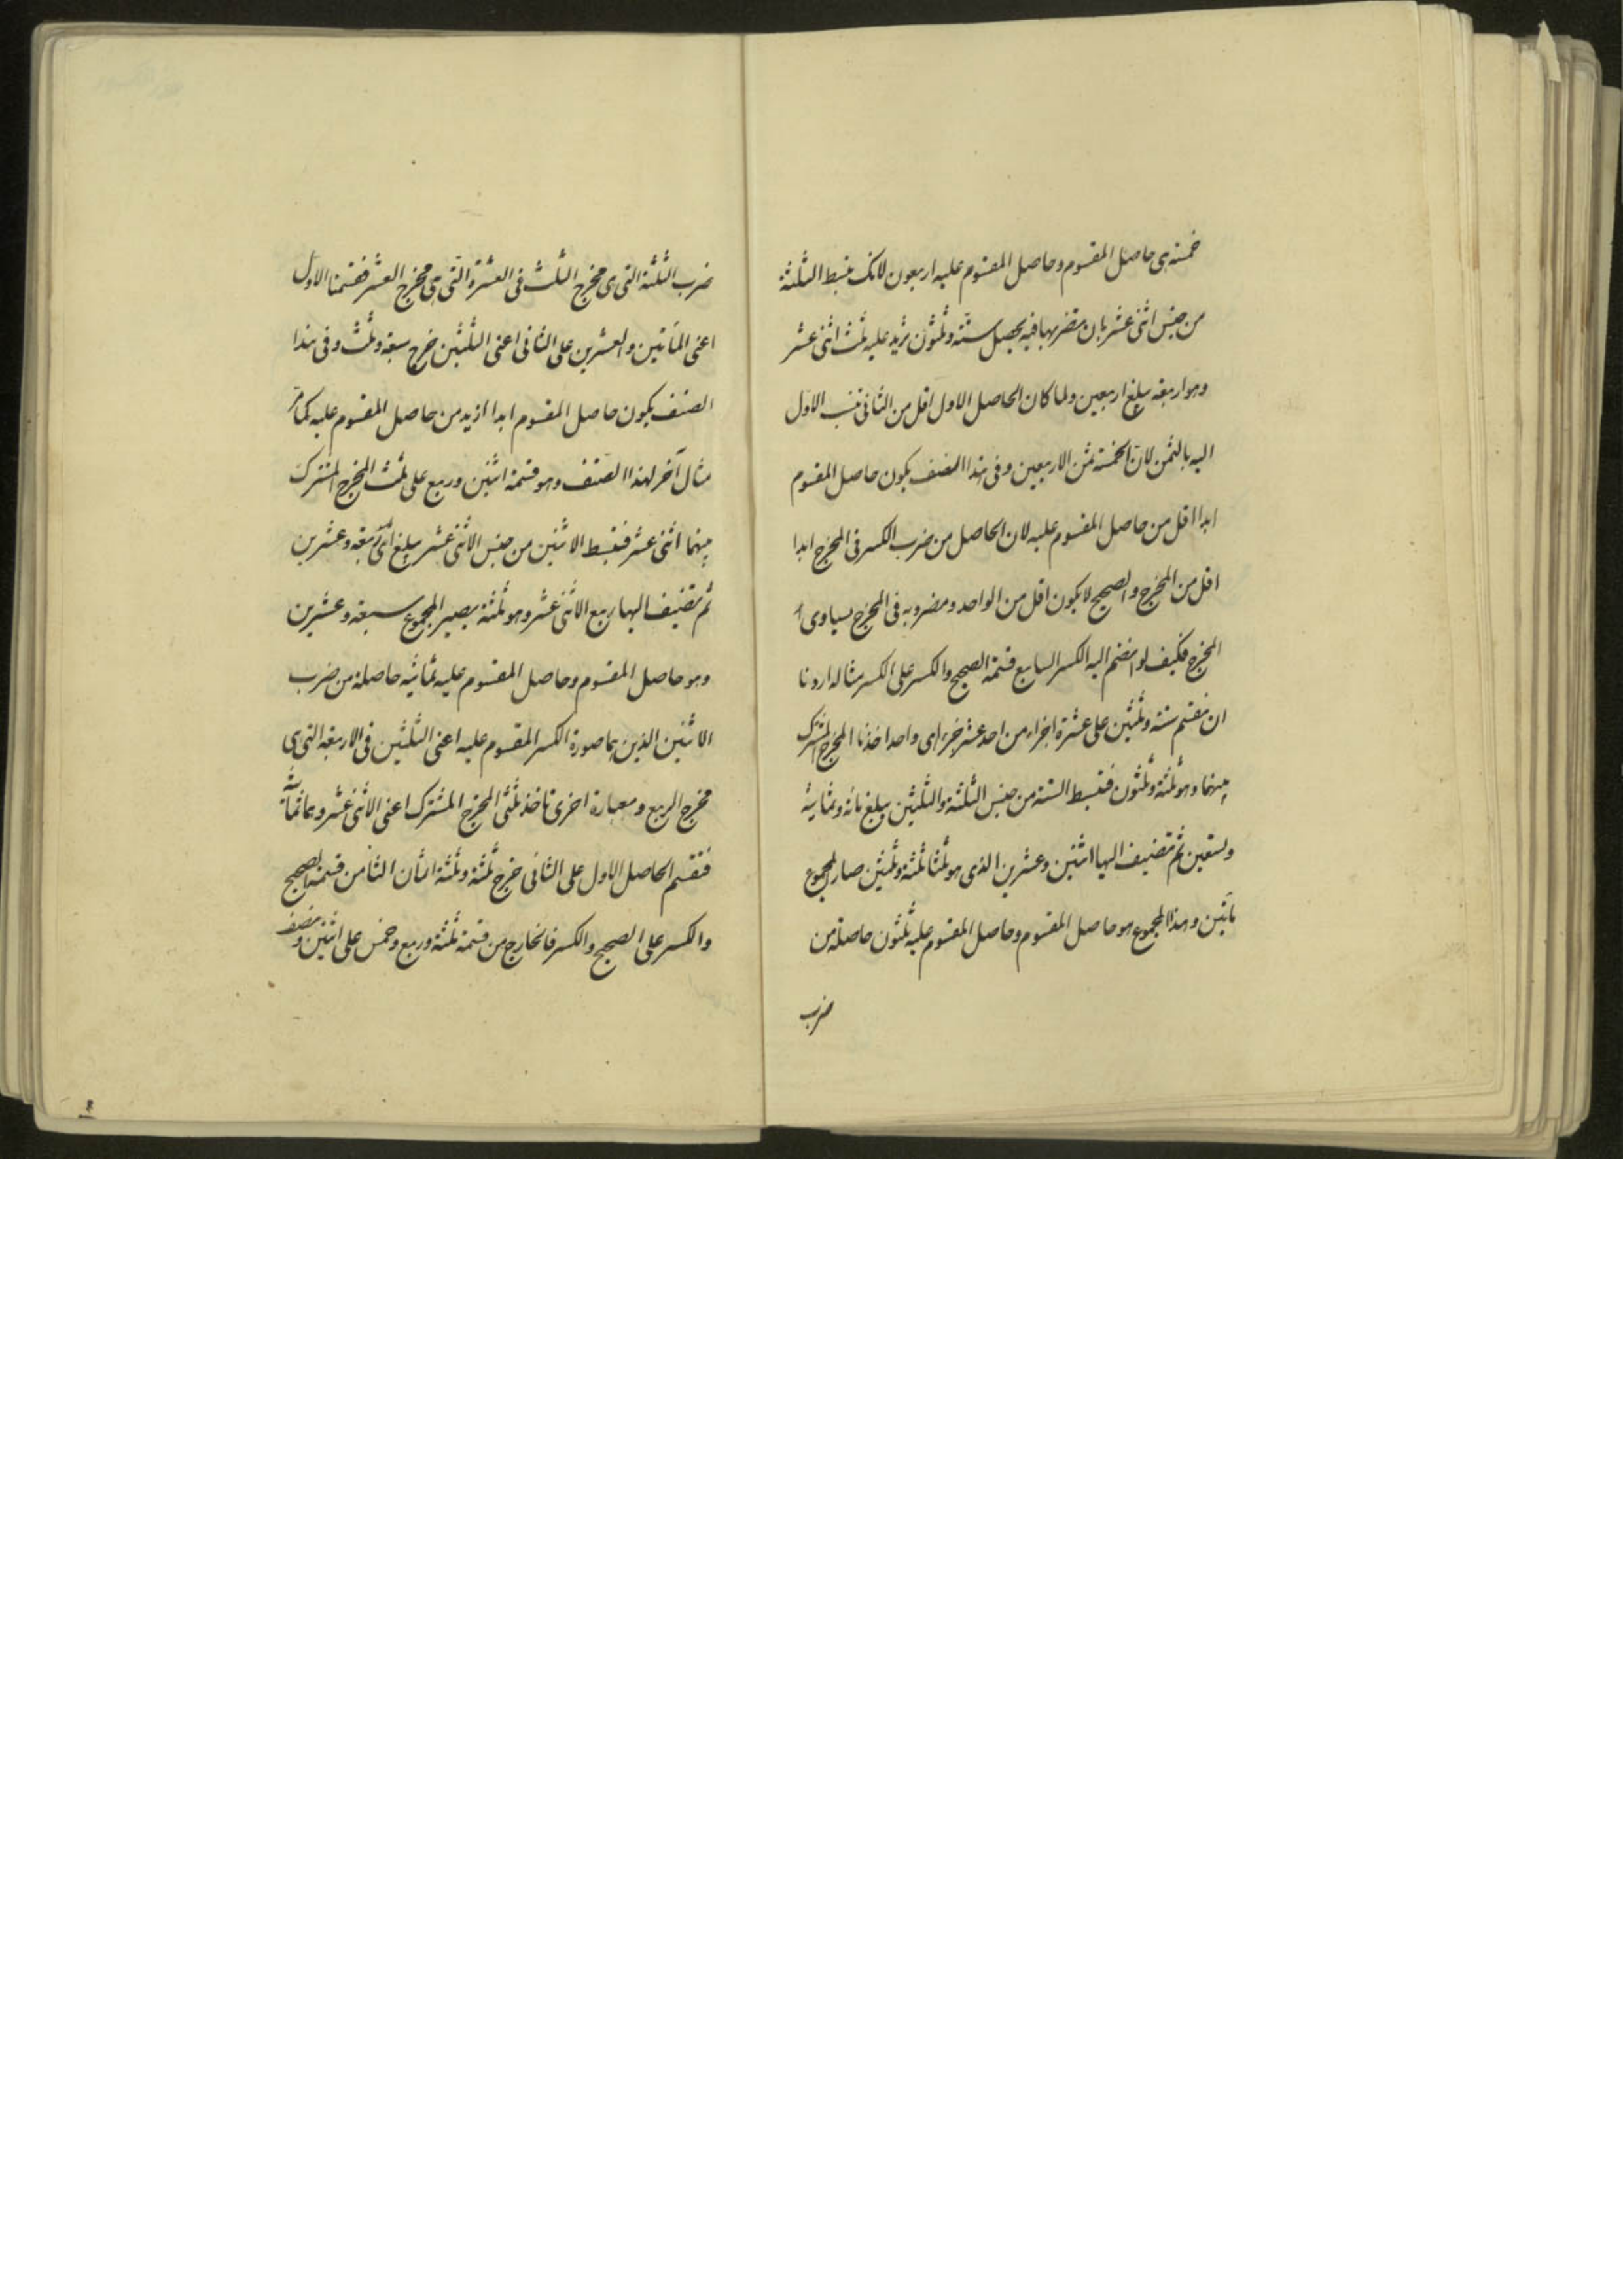 خمسة هى حاصل المقسوم وحاصل المقسوم عليه اربعون لانك تبسط الثلثة
من جنس اثنى عشر بان تضربها فيه يحصل ستة وثلثون تزيد عليه ثلث اثنى عشر
وهو اربعة يبلغ اربعين ولما كان الحاصل الاول اقل من الثانى تنسب الاول
اليه بالثمن لان الخمسة ثمن الاربعين وفى هذا الصنف يكون حاصل المقسوم
ابدا اقل من حاصل المقسوم عليه لان الحاصل من ضرب الكسر فى المخرج ابدا
اقل من المخرج والصحيح لا يكون اقل من الواحد ومضروبه فى المخرج يساوى
المخرج فكيف لو انضم اليه الكسر السابع قسمة الصحيح والكسر على الكسر مثاله اردنا
ان نقسم ستة وثلثين على عشرة اجزاء من احد عشر جزء اى واحد اخذنا المخرج المشترك
بينهما وهو ثلثة وثلثون فنبسط الستة من جنس الثلثة والثلثين يبلغ مائة وثمانية
وتسعين ثم تضيف اليها اثنين وعشرين الذى هو ثلثا ثلثة وثلثين صار المجموع
مائتين وهذا المجموع هو حاصل المقسوم وحاصل المقسوم عليه ثلثون حاصلة من
ضرب
ضرب الثلثة التى هى مخرج الثلث فى العشرة التى هى مخرج العشر فقسمنا الاول
اعنى المائتين والعشرين على الثانى اعنى الثلثين خرج سبعة وثلث وفى هذا
الصنف يكون حاصل المقسوم ابدا ازيد من حاصل المقسوم عليه كما مر
مثال آخر لهذا الصنف وهو قسمة اثنين وربع على ثلث المخرج المشترك
بينهما اثنى عشر فنبسط الاثنين من جنس الاثنى عشر يبلغ اربعة وعشرين
ثم تضيف اليها ربع الاثنى عشر وهو ثلثة يصير المجموع سبعة وعشرين
وهو حاصل المقسوم وحاصل المقسوم عليه ثمانية حاصلة من ضرب
الاثنين الذين هما صورة الكسر المقسوم عليه اعنى الثلثين فى الاربعة التى هى
مخرج الربع وبعبارة اخرى تاخذ ثلثى المخرج المشترك اعنى الاثنى عشر وهما ثمانية
فنقسم الحاصل الاول على الثانى خرج ثلثة وثلثة اثمان الثامن قسمة الصحيح
والكسر على الصحيح والكسر فالخارج من قسمة ثلثة وربع وخمس على اثنين ونصف